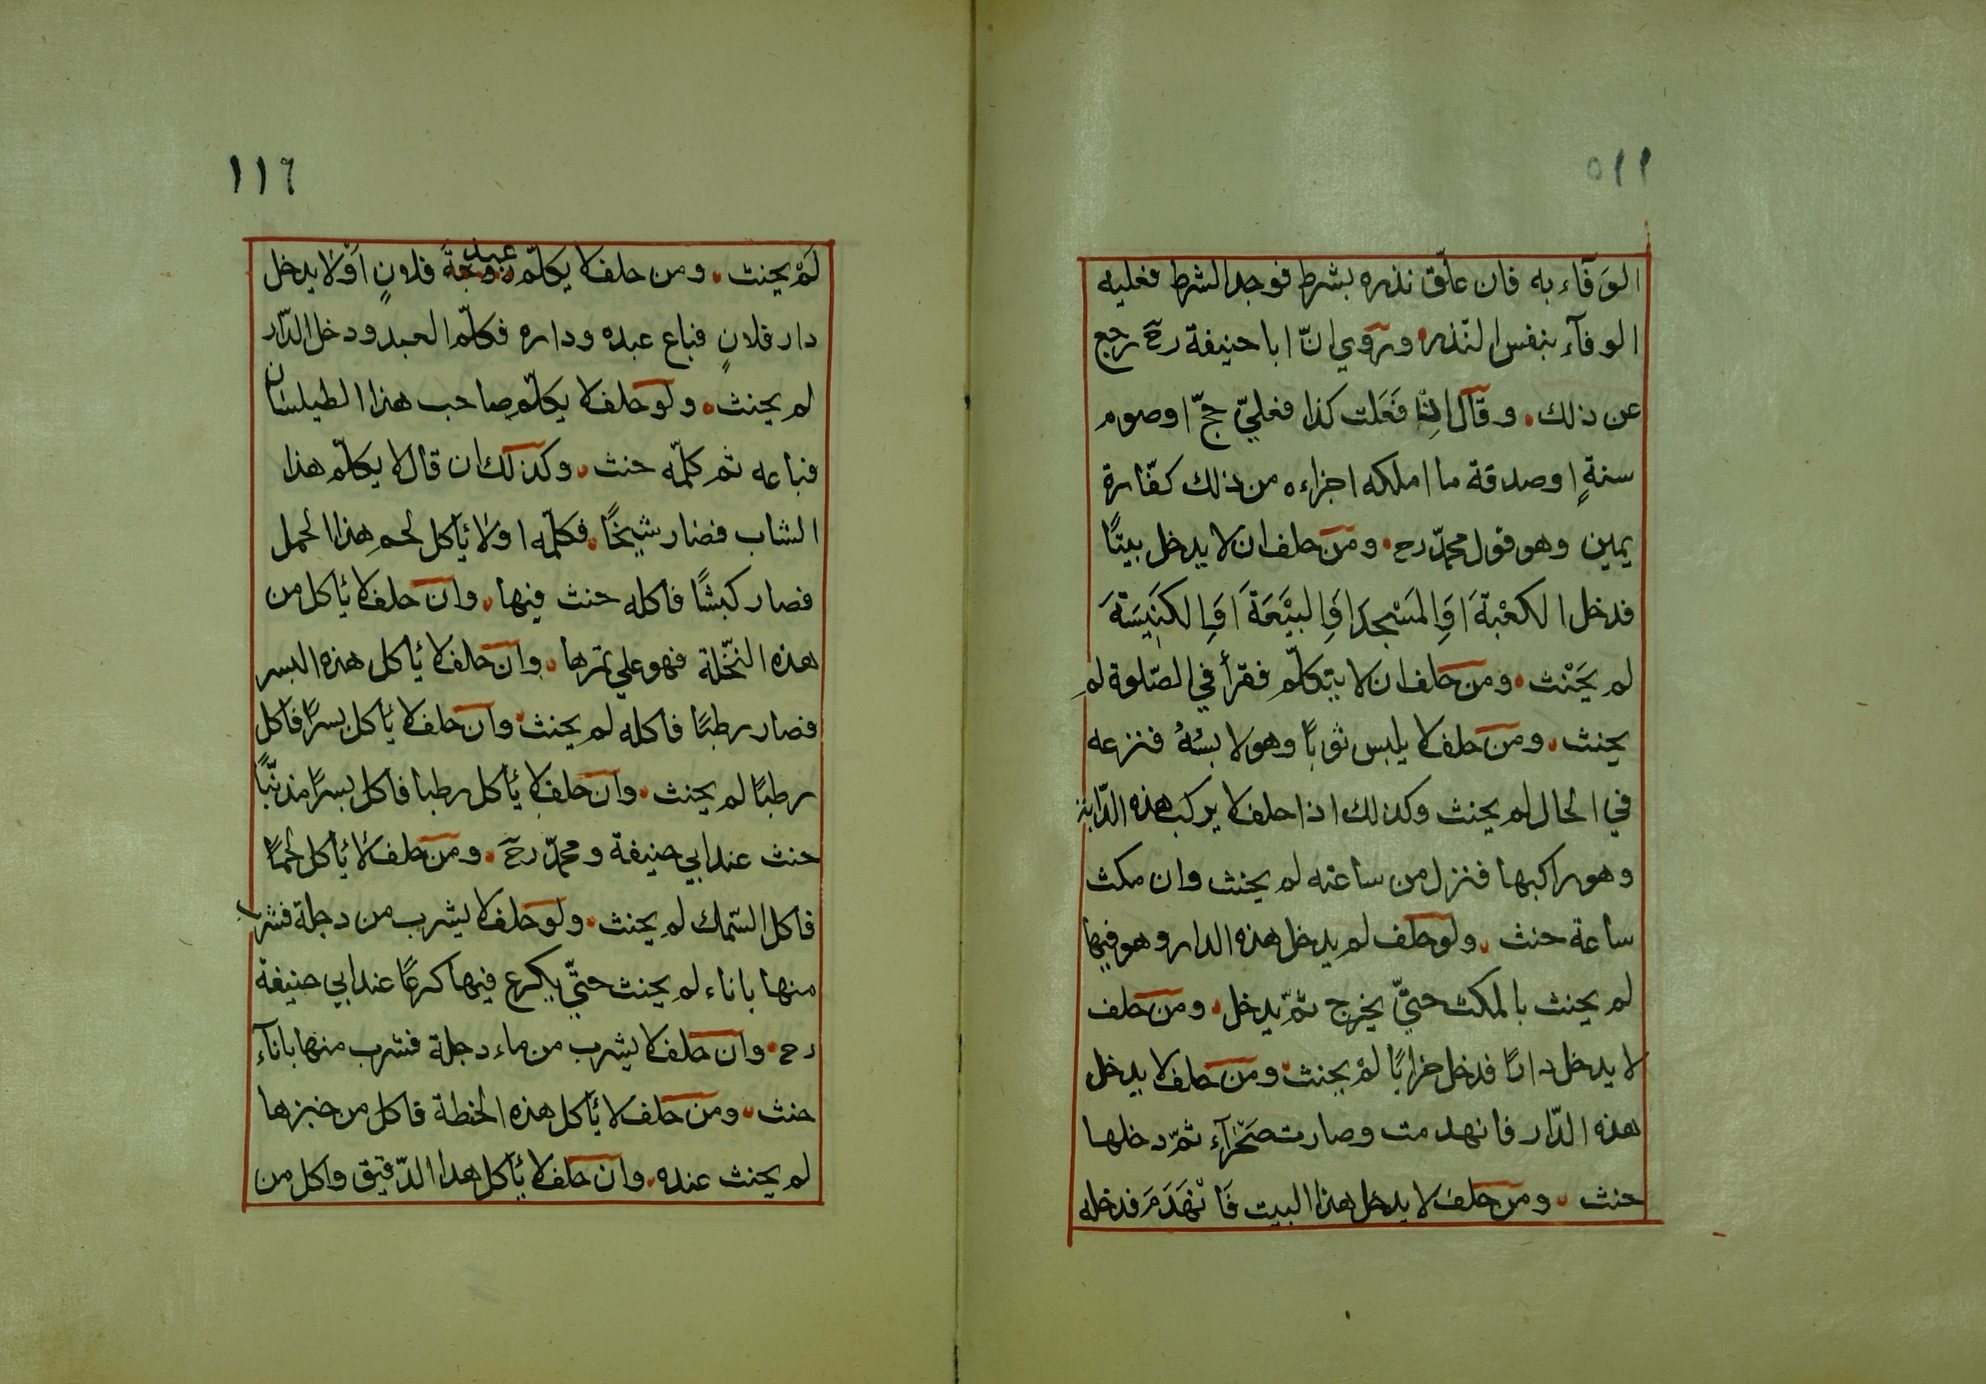 ١١٥
الوَفآء به فان علّق نذره بشرط فوجد الشرط فعليه
الوفآء بنفس النّذر ورُوي انّ ابا حنيفة رحَ رجع
عن ذلك وقال ان فَعَلت كذا فعليّ حجّ او صوم
سنةٍ او صدقة ما املكه اجزاءه من ذلك كفّارة
يمين وهو قول محمّد رح ومن حلف ان لا يدخل بيتًا
فدخل الكعْبةَ اوِ المَسْجدَ اوِ البيْعَةَ اوِ الكَنِيسَةَ
لم يَحْنث ومن حلف ان لا يتكلّم فقرأ في الصّلوة لم
يحنث ومن حلف لا يلبس ثوبًا وهو لابسُهُ فنزعه
في الحال لم يحنث وكذلك اذا حلف لا يركب هذه الدّابة
وهو راكبها فنزل من ساعته لم يحنث وان مكث
ساعة حنث ولو حلف لم يدخل هذه الدار وهو فيها
لم يحنث بالمكث حتيّ يخرج ثمّ يدخل ومن حلف
لا يدخل دارًا فدخل خرابًا لمْ يحنث ومن حلف لا يدخل
هذه الدّار فانهدمت وصارت صَحْرآء ثمّ دخلها
حنث ومن حلف لا يدخل هذا البيت فَانْهَدَمَ فدخله
١١٦
لَمْ يحنث ومن حلف لا يكلّم عبد زوجة فلانٍ اوْ لا يدخل
دار فلانٍ فباع عبده وداره فكلّم العبد ودخل الدّار
لم يحنث ولو حلف لا يكلّم صاحب هذا الطيلسان
فباعه ثم كلمّه حنث وكذلك ان قال لا يكلّم هذا
الشاب فصار شيخًا فكلّمه او لا يأكل لحم هذا الحمل
فصار كبشًا فاكله حنث فيها وان حلف لا يأكل من
هذه النخّلة فهو علي تمرها وان حلف لا يأكل هذه البسر
فصار رطبًا فاكله لم يحنث وان حلف لا يأكل بسرًا فاكل
رطبًا لم يحنث وان حلف لا يأكل رطبا فاكل بسرًا مذنّبًا
حنث عند ابي حنيفة ومحمّد رحَ ومن حلف لا يأكل لحمًا
فاكل السّمك لم يحنث ولو حلف لا يشرب من دجلة فشرب
منها باناء لم يحنث حتّي يكرع فيها كرعًا عند ابي حنيفة
رح وان حلف لا يشرب من ماء دجلة فشرب منها بانآء
حنث ومن حلف لا يأكل هذه الحنطة فاكل من خبزها
لم يحنث عنده وان حلف لا يأكل هدا الدّقيق واكل من